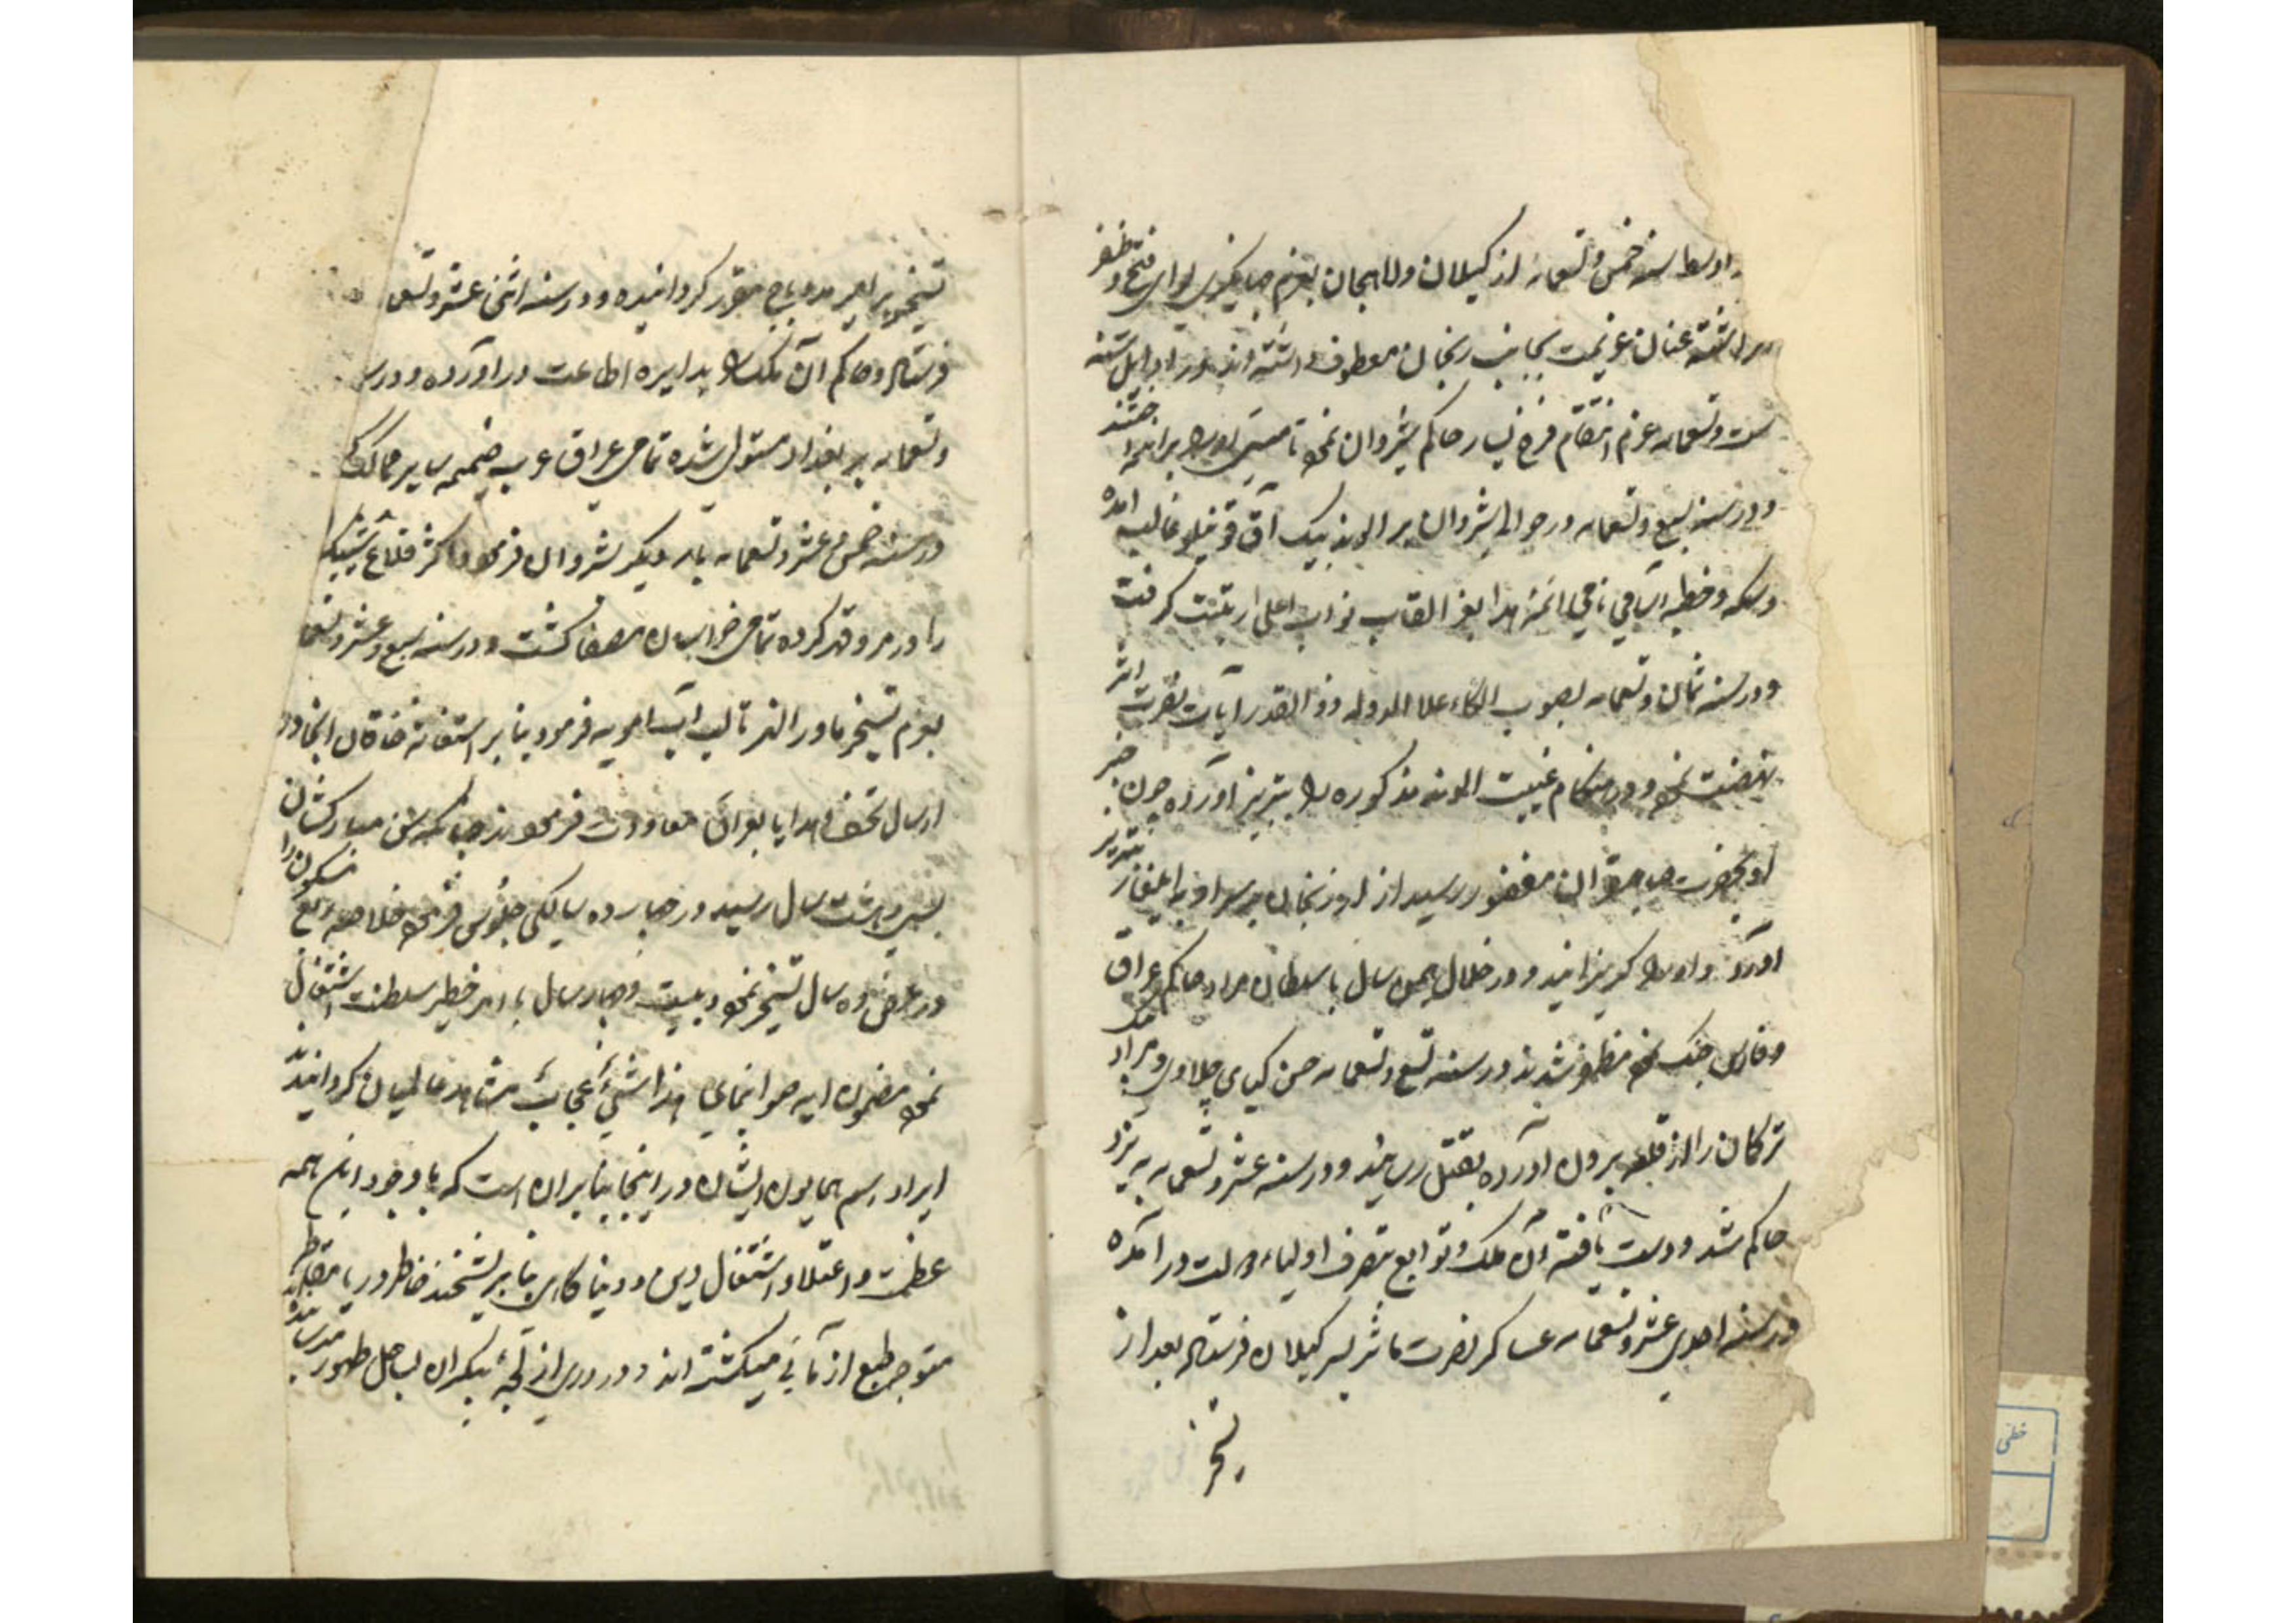 اواسط سنه خمس و تسعمائه از کیلان و لاهیجان بعزم جهانکیری لوای فتح و ظفر
برافراشته عنان عزیمت بجانب ارزنجان معطوف داشته اند و در اوایل سنه
ست و تسعمائه عزم انتقام فرخ یسار حاکم شیروان نموده تا مستی او را برانداختند
و در سنه سبع و تسعمائه در حوالی شروان بر الوند بیک آق قوینلو غالب آمده
و سکه و خطبه باسامی نامی ائمه هدا بعز القاب نواب اعلی زینت کرفت
و در سنه ثمان و تسعمائه بصوب الکاء علاء الدوله ذو القدر آیات نصرت اثر
نهضت نمود و در هنکام غیبت الوند مذکوره را بتبریز آورده چون خبر
او بحضرت صاحبقران مغفور رسید از ارزنجان بر سر او به ایلغار بتبریز
آورد و او را کریزانید و در خلال همین سال با سلطان مراد حاکم عراق
و فارس جنک نموده مظفر شدند در سنه تسع و تسعمائه حسن کیای چلاوی و مراد بک
ترکمان را از قلعه برون آورده بقتل رسانید و در سنه عشر و تسعمائه به یزد
حاکم شد و دست یافته آن ملک و توابع بتصرف اولیاء دولت در آمده
در سنه احدی عشر و تسعمائه عساکر نصرت ماثر بسر کیلان فرستاده بعد از
تسخیر
تسخیر بر امیره دوباج مقرر کردانیده و در سنه اثنی عشر و تسعما
فرستاده و حاکم آن ملک را بدایره اطاعت در آورده و در س
و تسعمائه بر بغداد مستولی شده تمامی عراق عرب ضمیمه سایر ممالک
در سنه خمس عشر و تسعمائه بار دیکر بشروان فرموده اکثر قلاع شیبک
را در مرو قتل کرده تمامی خراسان مصفا کشت و در سنه سبع و عشر و تسعما
بعزم تسخیر ماوراء النهر تا لب آب امویه فرمود بنا بر استغاثه خاقان انجا و در
ارسال تحف و هدایا بعراق معاودت فرمودند چنانکه سن مبارکشان
بسی و هشت سال رسید در چهارده سالکی جلوس فرموده خلاصه ربع مسکون را
در عرض ده سال تسخیر نمود بیست و چهار سال بامر خطیر سلطنت اشتغال
نموده مضمون ایه هو انمای هذا شئ عجاب مشاهد عالمیان کردانید
ایراد اسم همایون ایشان در اینجا بنا بران است که با وجود این همه
عظمت و اعتلا و اشتغال دین و دنیا کاهی بنا بر تشحیذ خاطر دریا مقاطر
متوجه طبع آزمائی میکشته اند و در دری از لجه بیکران بساحل ظهور میرسانیده اند
خطی